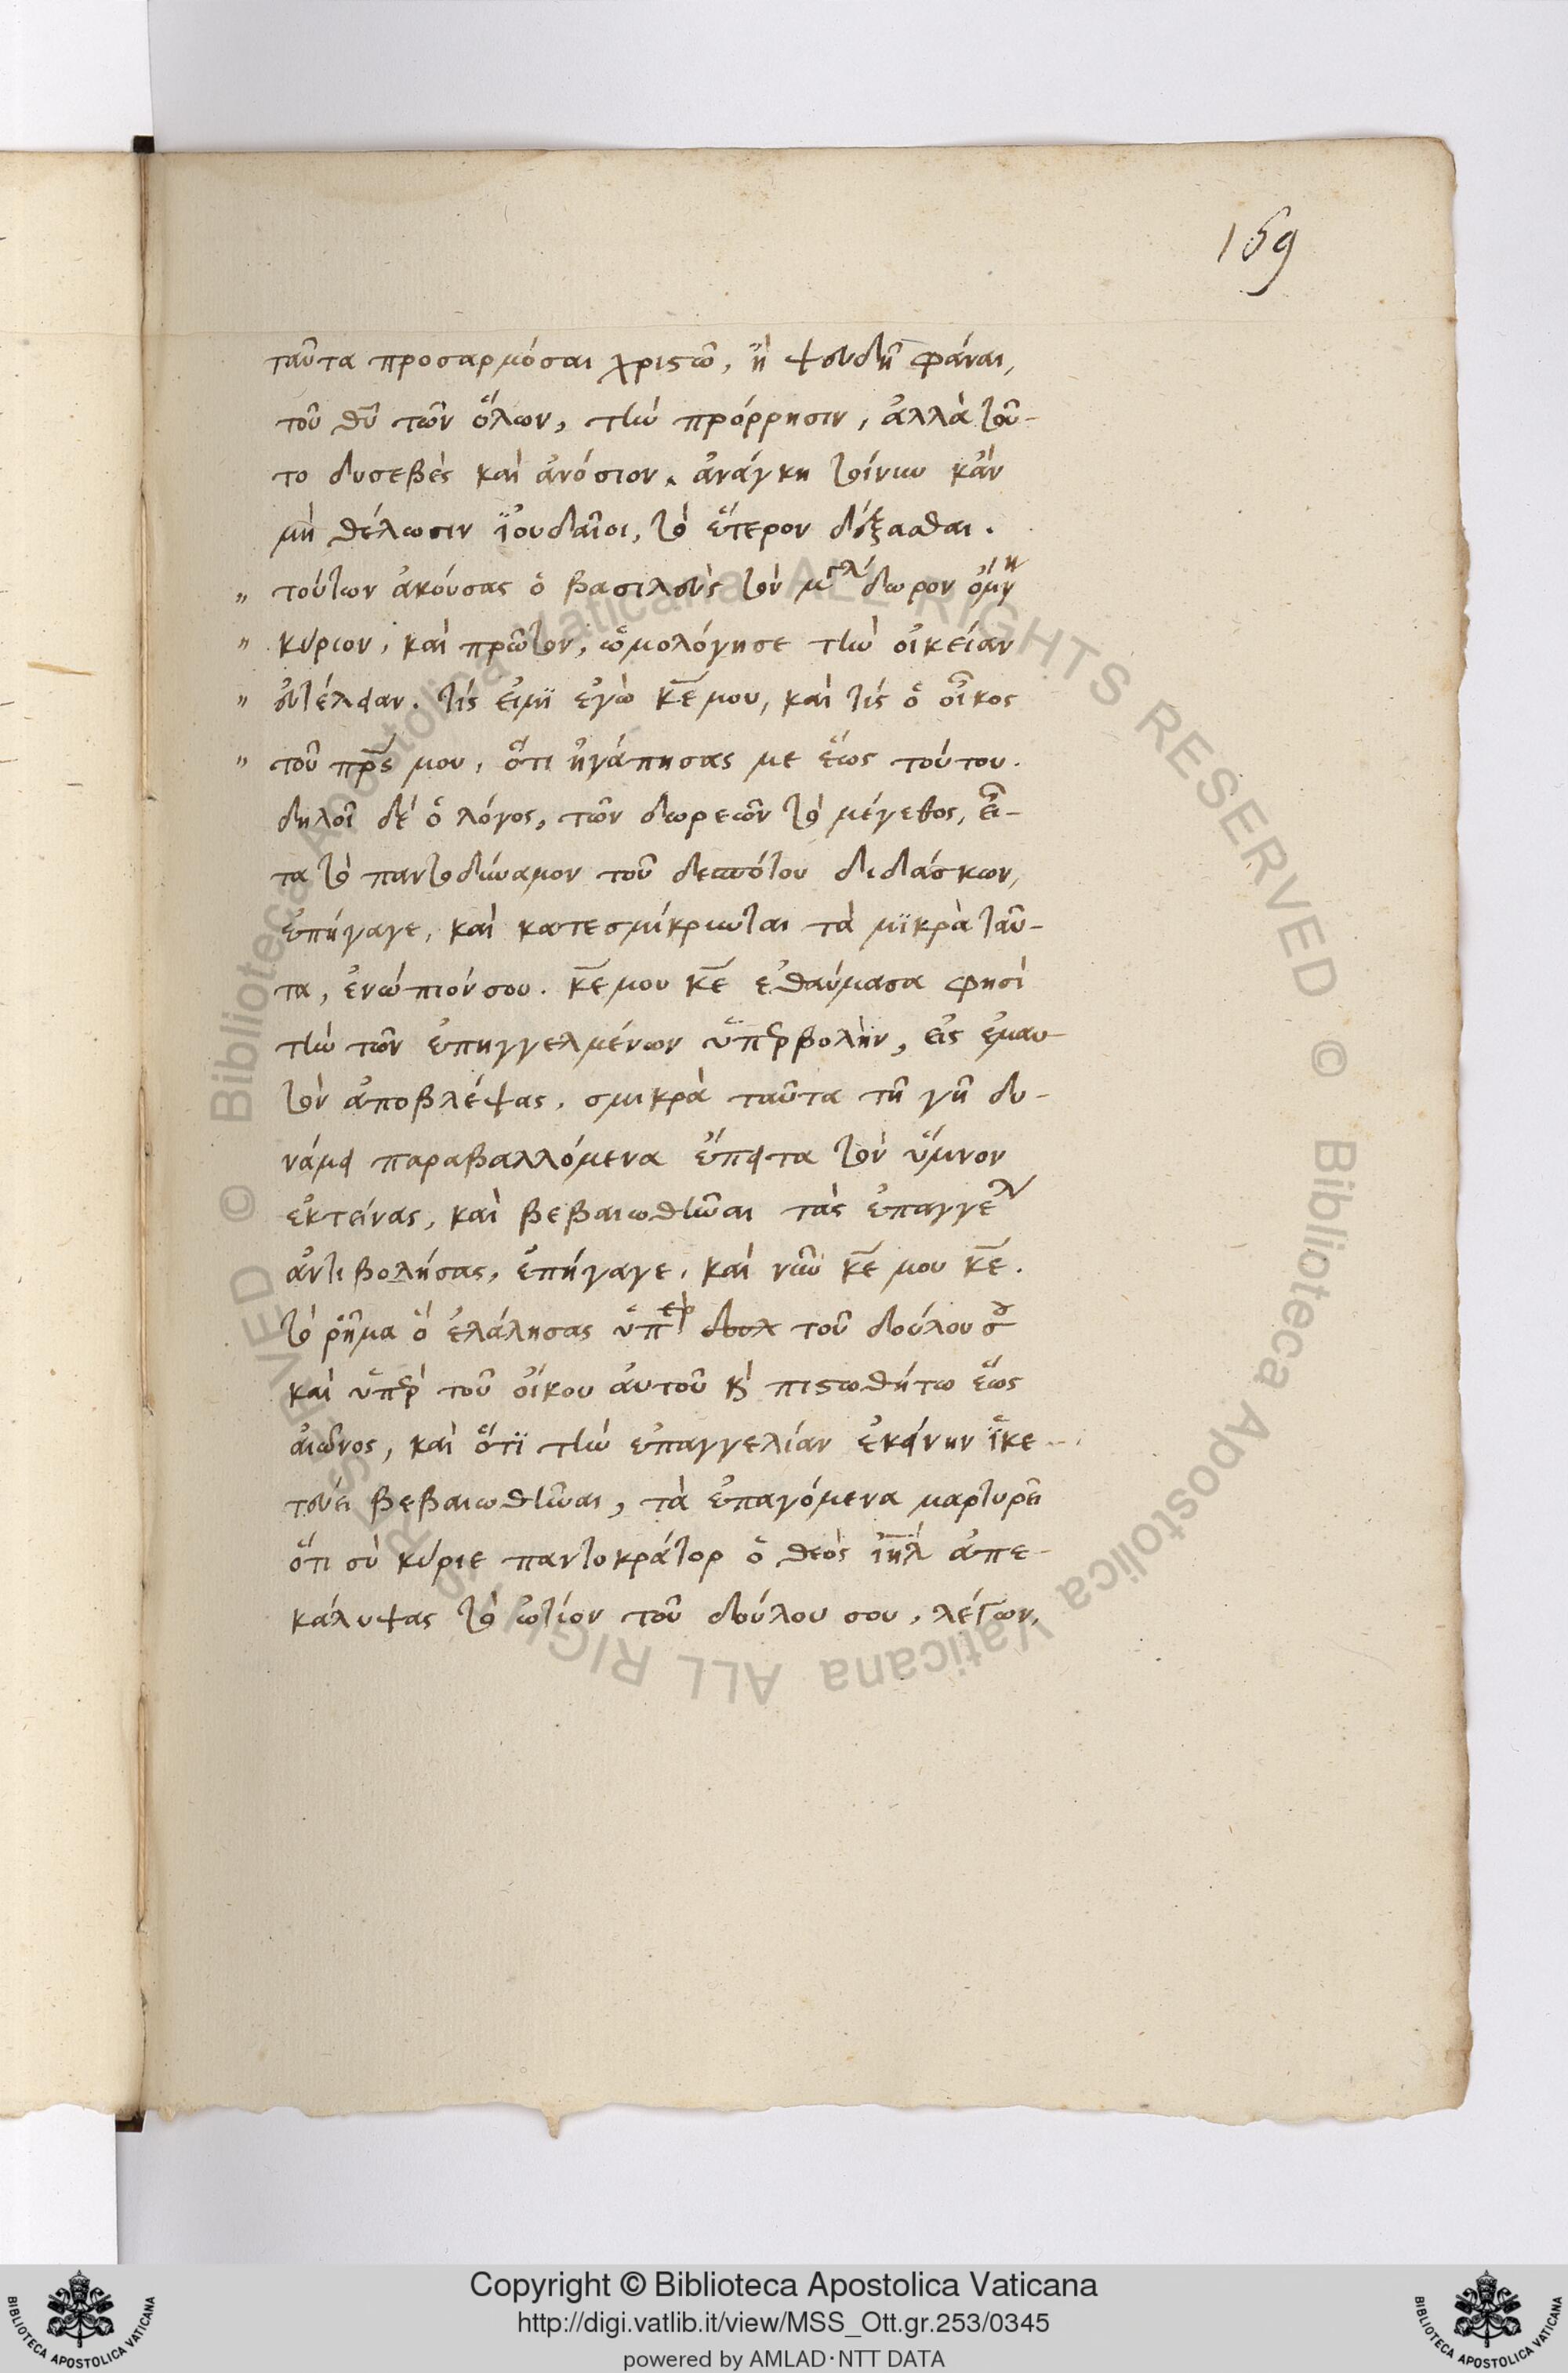 159
ταῦτα προσαρμόσαι χριστῶ, ἢ ψευδῆ φάναι,
τοῦ θῦ τῶν ὅλων, τὴν πρόρρησιν, ἀλλὰ τοῦ-
το δυσεβὲς καὶ ἀνόσιον. ἀνάγκη τοίνυν κἂν
μὴ θέλωσιν ϊουδαῖοι, τὸ ἕτερον δέξασθαι.
" τούτων ἀκούσας ὁ βασιλεὺς τὸν
" κύριον, καὶ πρῶτον, ὡμολόγησε τὴν οἰκείαν
" εὐτέλειαν. τίς εἰμϊ ἐγὼ κε μου, καὶ τίς ὁ οἶκος
" τοῦ πρς μου, ὅτι ἠγάπησας με ἕως τούτου.
δηλοῖ δὲ ὁ λόγος, τῶν δωρεῶν τὸ μέγεθος, εἶ-
τα τὸ παντοδύναμον τοῦ δεσπότου διδάσκων,
ἐπήγαγε, καὶ κατεσμίκρυνται τὰ μϊκρὰ ταῦ-
τα, ἐνώπιόν σου. κε μου κε ἐθαύμασα φησὶ
τὴν τῶν ἐπηγγελμένων ὑπερβολὴν, εἰς ἐμαυ-
τὸν ἀποβλέψας. σμικρὰ ταῦτα τῆ γῆ δυ-
νάμει παραβαλλόμενα ἔπειτα τὸν ὕμνον
ἐκτείνας, καὶ βεβαιωθῆναι τὰς ἐπαγγελ
ἀντιβολήσας, ἐπήγαγε, καὶ νῦν κε μου κε.
τὸ ῥῆμα ὃ ἐλάλησας ὑπὲρ δουλ τοῦ δούλου σου
καὶ ὑπὲρ τοῦ οἴκου αὐτοῦ καὶ πιστωθήτω ἕως
αἰῶνος, καὶ ὅτϊ τὴν ἐπαγγελίαν ἐκείνην ϊκε-
τεύει βεβαιωθῆναι, τὰ ἐπαγόμενα μαρτυρεῖ
ὅτι σὺ κύριε παντοκράτορ ὁ θεὸς ιηλ ἀπε-
κάλυψας τὸ ὠτίον τοῦ δούλου σου, λέγων,
Copyright © Biblioteca Apostolica Vaticana
http://digi.vatlib.it/view/MSS_Ott.gr.253/0345
powered by AMLAD·NTT DATA
BIBLIOTECA APOSTOLICA VATICANA
BIBLIOTECA APOSTOLICA VATICANA
© Biblioteca Apostolica Vaticana ALL RIGHTS RESERVED
© Biblioteca Apostolica Vaticana ALL RIGHTS RESERVED